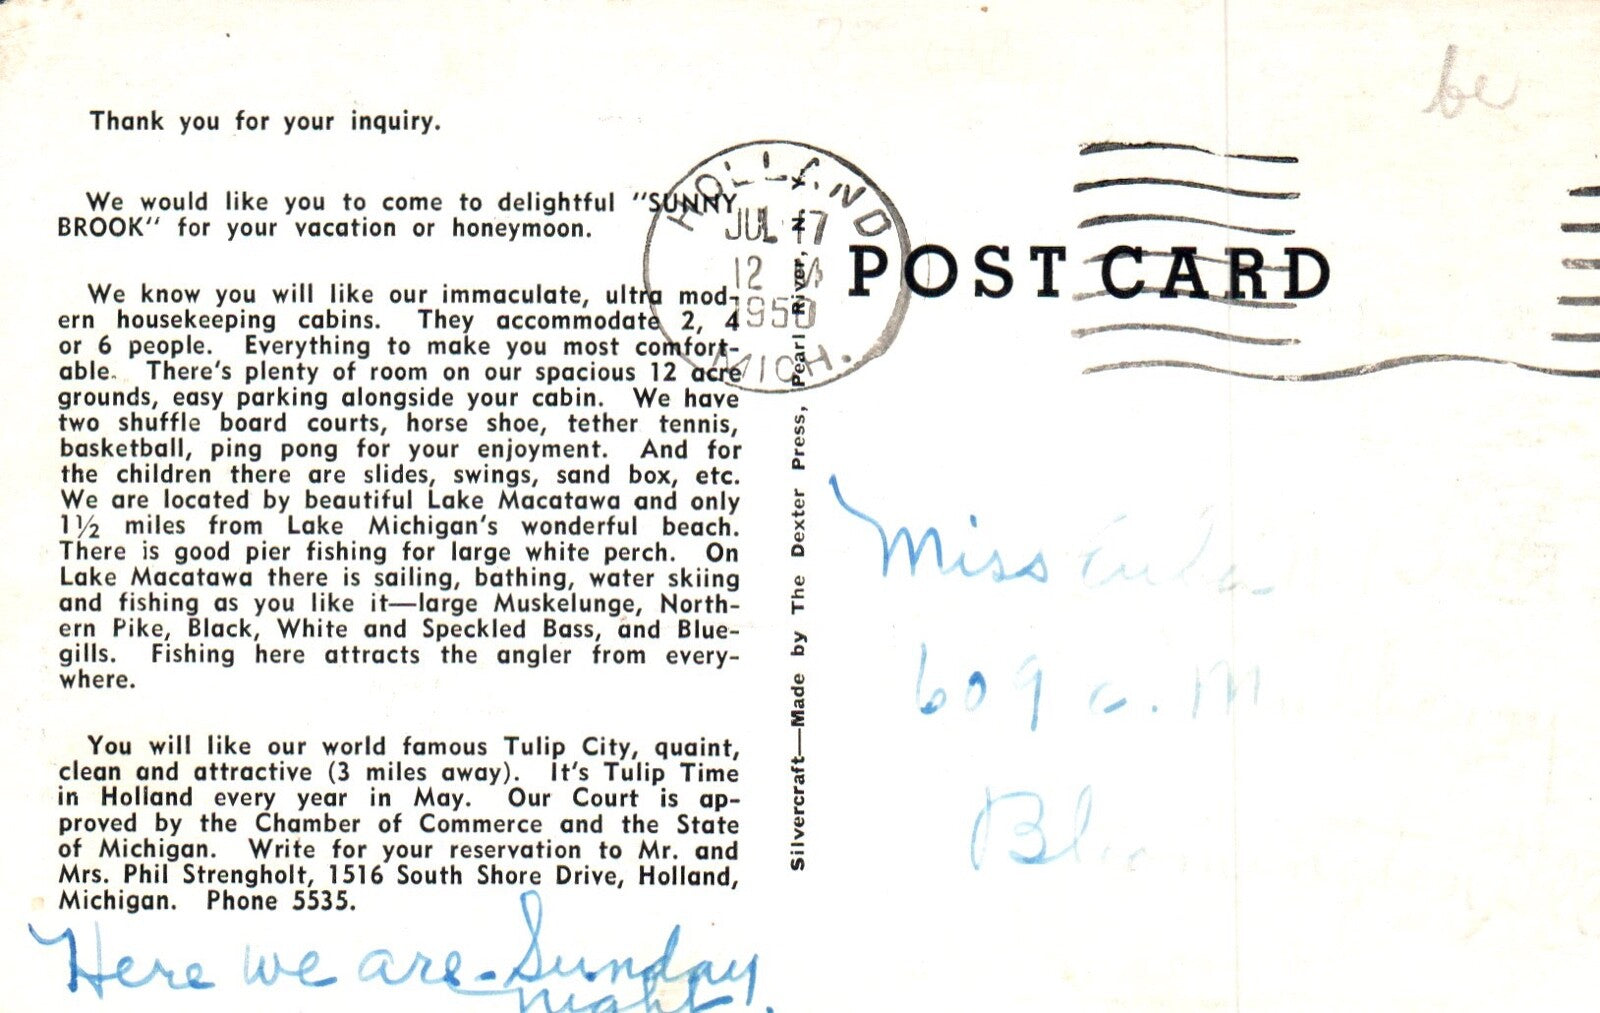 be
Thank you for your inquiry.
We would like you to come to delightful "SUNNY
BROOK" for your vacation or honeymoon.
We know you will like our immaculate, ultra mod-
ern housekeeping cabins. They accommodate 2, 4
or 6 people. Everything to make you most comfort-
able. There's plenty of room on our spacious 12 acre
grounds, easy parking alongside your cabin. We have
two shuffle board courts, horse shoe, tether tennis,
basketball, ping pong for your enjoyment. And for
the children there are slides, swings, sand box, etc.
We are located by beautiful Lake Macatawa and only
1½ miles from Lake Michigan's wonderful beach.
There is good pier fishing for large white perch. On
Lake Macatawa there is sailing, bathing, water skiing
and fishing as you like it—large Muskelunge, North-
ern Pike, Black, White and Speckled Bass, and Blue-
gills. Fishing here attracts the angler from every-
where.
You will like our world famous Tulip City, quaint,
clean and attractive (3 miles away). It's Tulip Time
in Holland every year in May. Our Court is ap-
proved by the Chamber of Commerce and the State
of Michigan. Write for your reservation to Mr. and
Mrs. Phil Strengholt, 1516 South Shore Drive, Holland,
Michigan. Phone 5535.
Here we are - Sunday
night.
Silvercraft—Made by The Dexter Press, Pearl River, N. Y.
HOLLAND
JUL 17
12
1950
MICH.
POST CARD
Miss
609